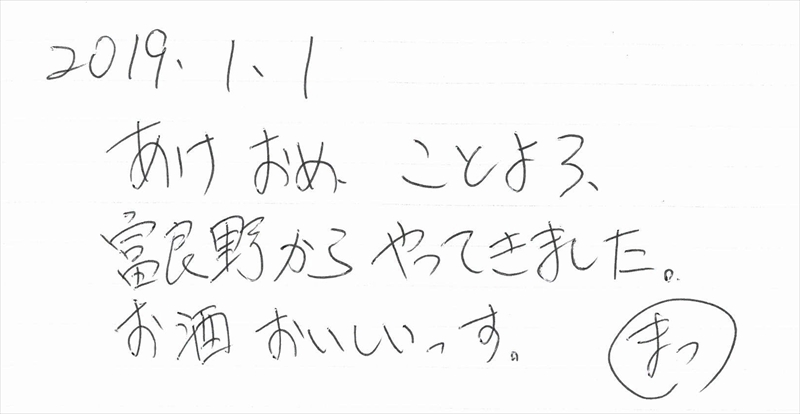 2019、1、1
あけおめ、ことよろ、
富良野からやってきました。
お酒おいしいっす。
まつ